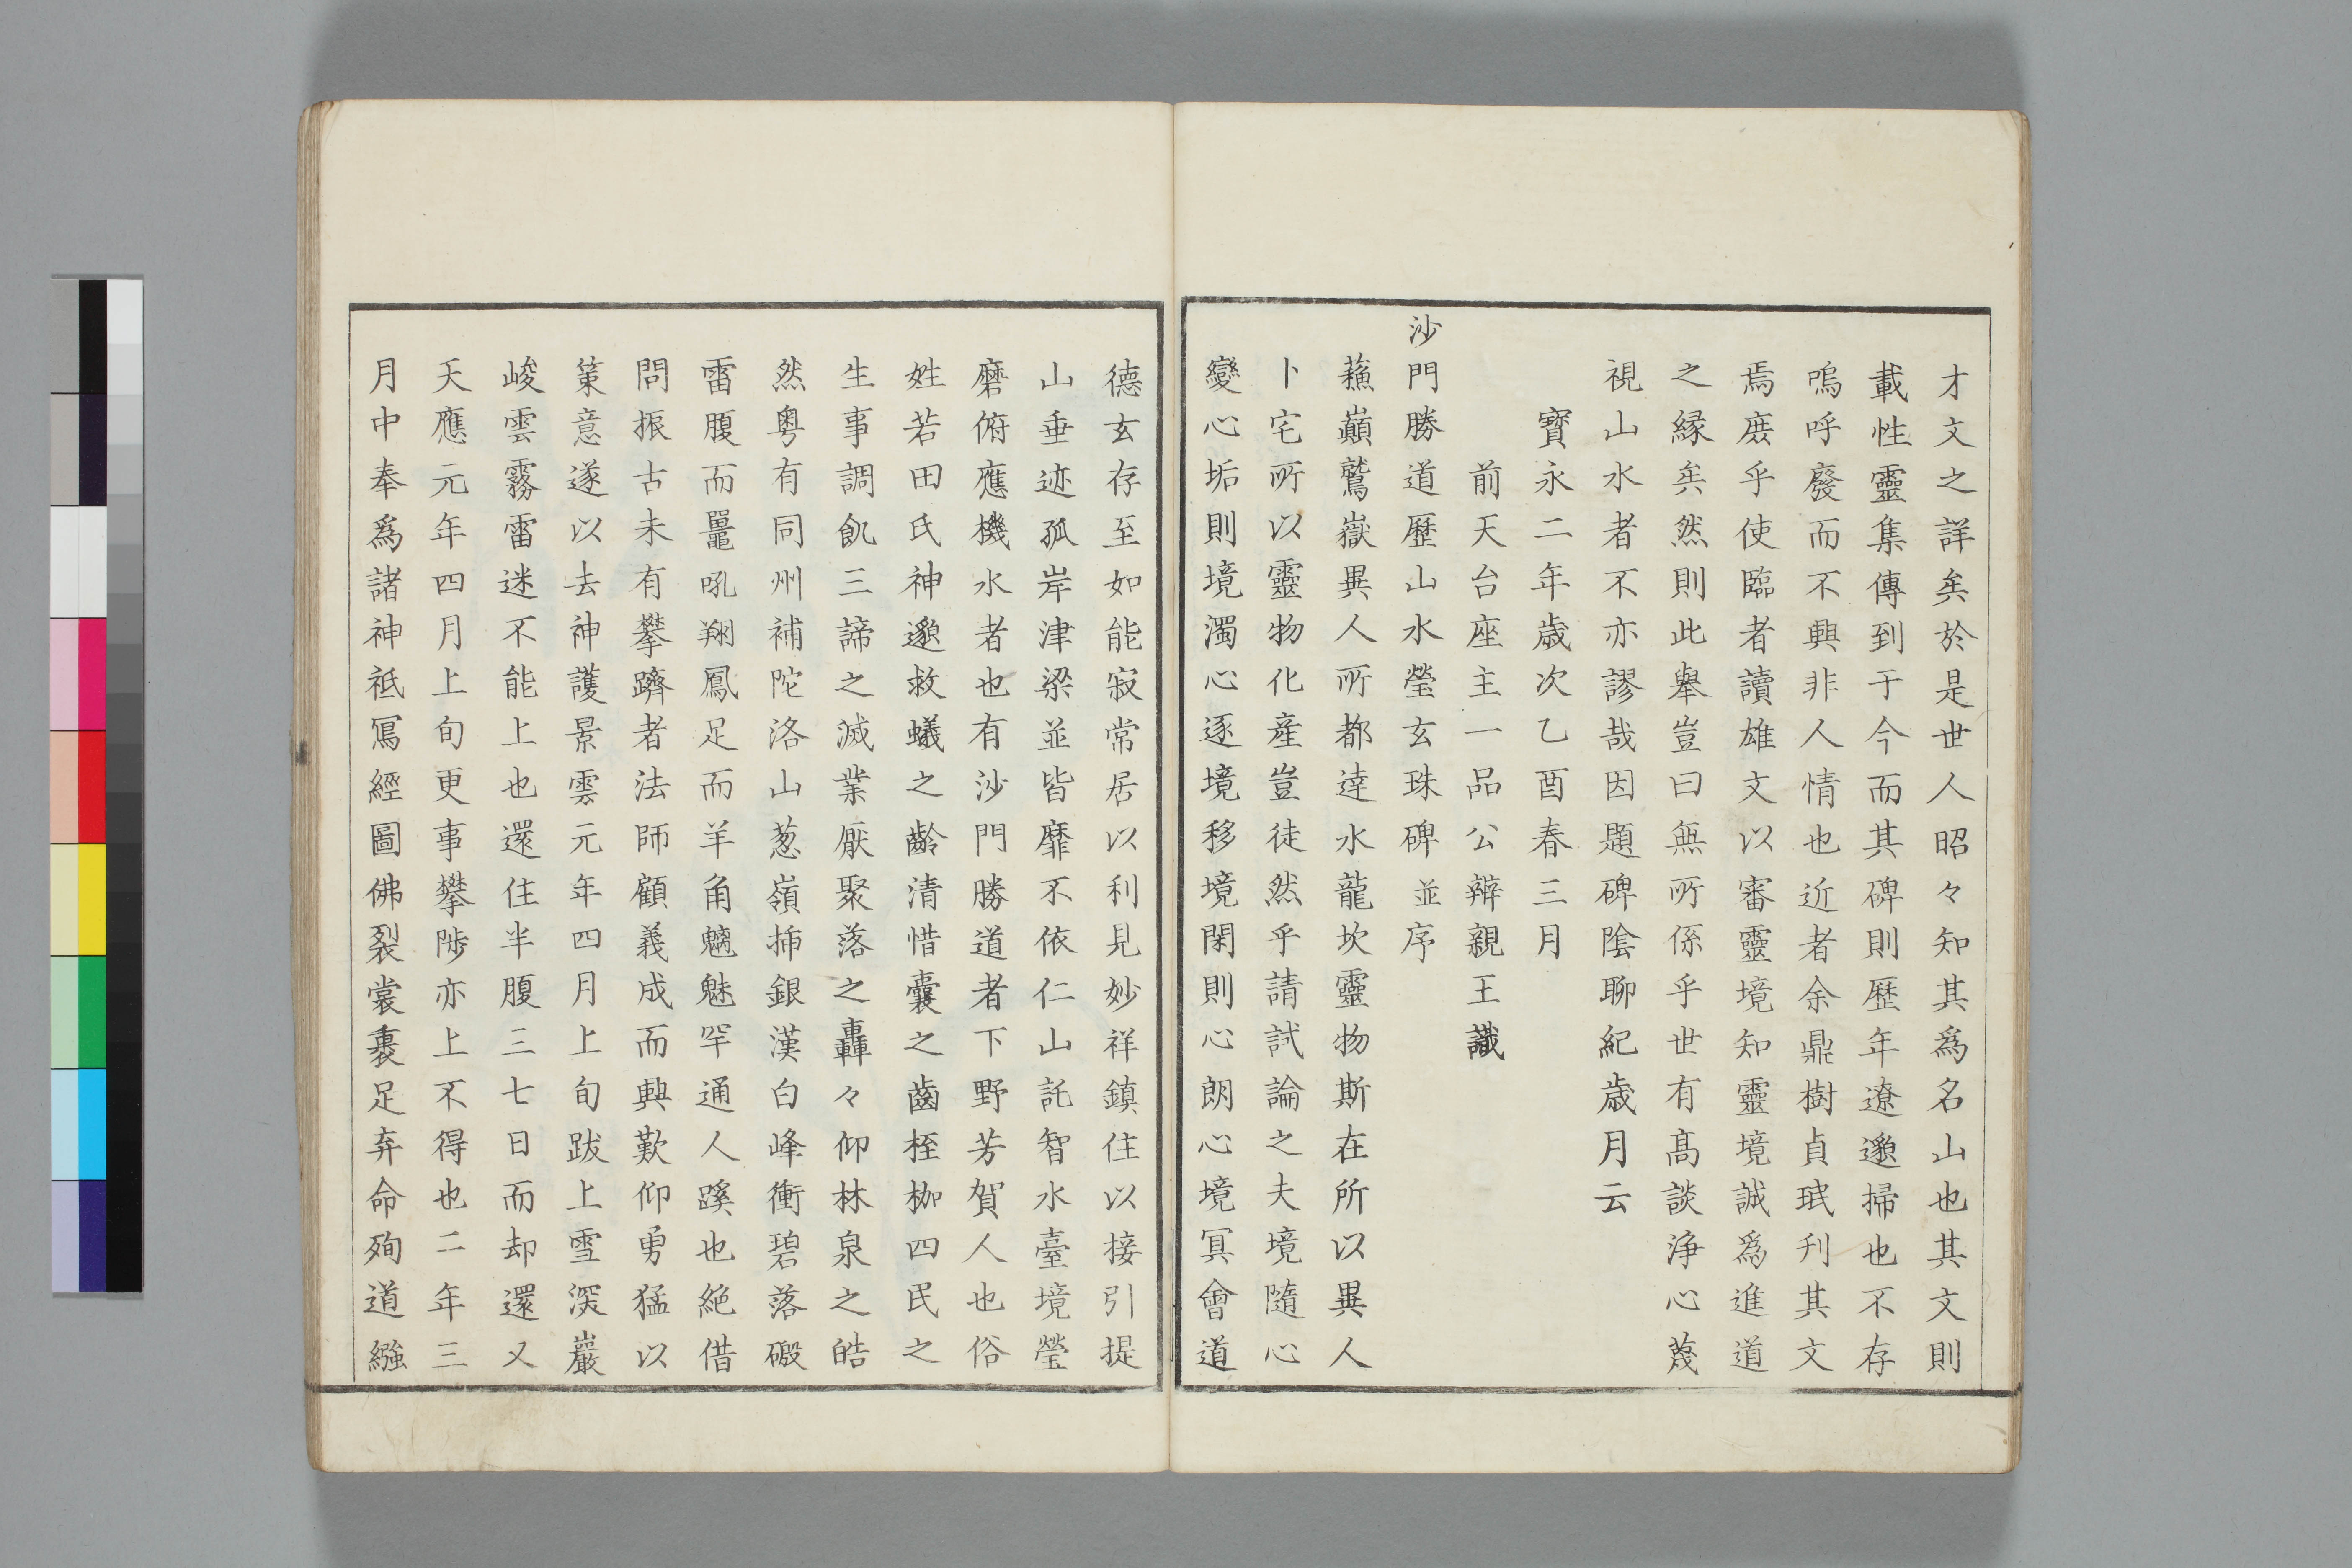 才文之詳矣於是世人昭々知其爲名山也其文則
載性靈集傳到于今而其碑則歷年遼邈掃也不存
嗚呼廢而不興非人情也近者余鼎樹貞珉刋其文
焉庶乎使臨者讀雄文以審靈境知靈境誠爲進道
之縁矣然則此舉豈曰無所係乎世有髙談浄心蔑
視山水者不亦謬哉因題碑陰聊紀歳月云
寳永二年歳次乙酉春三月
前天台座主一品公辨親王識
沙門勝道歷山水瑩玄珠碑並序
蘓巓鷲嶽異人所都達水龍坎靈物斯在所以異人
卜宅所以靈物化産豈徒然乎請試論之夫境隨心
變心垢則境濁心逐境移境閑則心朗心境冥會道
德玄存至如能寂常居以利見妙祥鎮住以接引提
山垂迹孤岸津梁並皆靡不依仁山託智水臺境瑩
磨俯應機水者也有沙門勝道者下野芳賀人也俗
姓若田氏神邈救蟻之齡清惜囊之齒桎枷四民之
生事調飢三諦之滅業厭聚落之轟々仰林泉之皓
然粤有同州補陀洛山葱嶺挿銀漢白峰衝碧落磤
雷腹而鼉吼翔鳳足而羊角魑魅罕通人蹊也絶借
問振古未有攀躋者法師顧義成而興歎仰勇猛以
策意遂以去神護景雲元年四月上旬跋上雪深巖
峻雲霧雷迷不能上也還住半腹三七日而却還又
天應元年四月上旬更事攀陟亦上不得也二年三
月中奉爲諸神祗冩經圖佛裂裳裹足弃命殉道繈